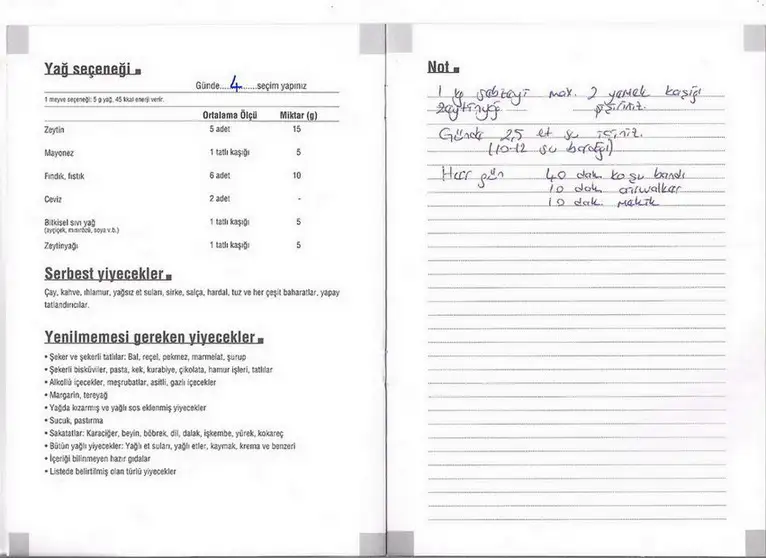 Yağ seçeneği
Günde....4.......seçim yapınız
1 meyve seçeneği: 5 g yağ, 45 kkal enerji verir.
Ortalama Ölçü Miktar (g)
Zeytin 5 adet 15
Mayonez 1 tatlı kaşığı 5
Fındık, fıstık 6 adet 10
Ceviz 2 adet -
Bitkisel sıvı yağ 1 tatlı kaşığı 5
(ayçiçek, mısırözü, soya v.b.)
Zeytinyağı 1 tatlı kaşığı 5
Serbest yiyecekler
Çay, kahve, ıhlamur, yağsız et suları, sirke, salça, hardal, tuz ve her çeşit baharatlar, yapay
tatlandırıcılar.
Yenilmemesi gereken yiyecekler
• Şeker ve şekerli tatlılar: Bal, reçel, pekmez, marmelat, şurup
• Şekerli bisküviler, pasta, kek, kurabiye, çikolata, hamur işleri, tatlılar
• Alkollü içecekler, meşrubatlar, asitli, gazlı içecekler
• Margarin, tereyağ
• Yağda kızarmış ve yağlı sos eklenmiş yiyecekler
• Sucuk, pastırma
• Sakatatlar: Karaciğer, beyin, böbrek, dil, dalak, işkembe, yürek, kokareç
• Bütün yağlı yiyecekler: Yağlı et suları, yağlı etler, kaymak, krema ve benzeri
• İçeriği bilinmeyen hazır gıdalar
• Listede belirtilmiş olan türlü yiyecekler
Not
1 kg sebzeyi max. 2 yemek kaşığı
zeytinyağı pişiriniz.
Günde 2,5 lt su içiniz.
(10-12 su bardağı)
Her gün 40 dak. koşu bandı
10 dak. airwalker
10 dak. mekik